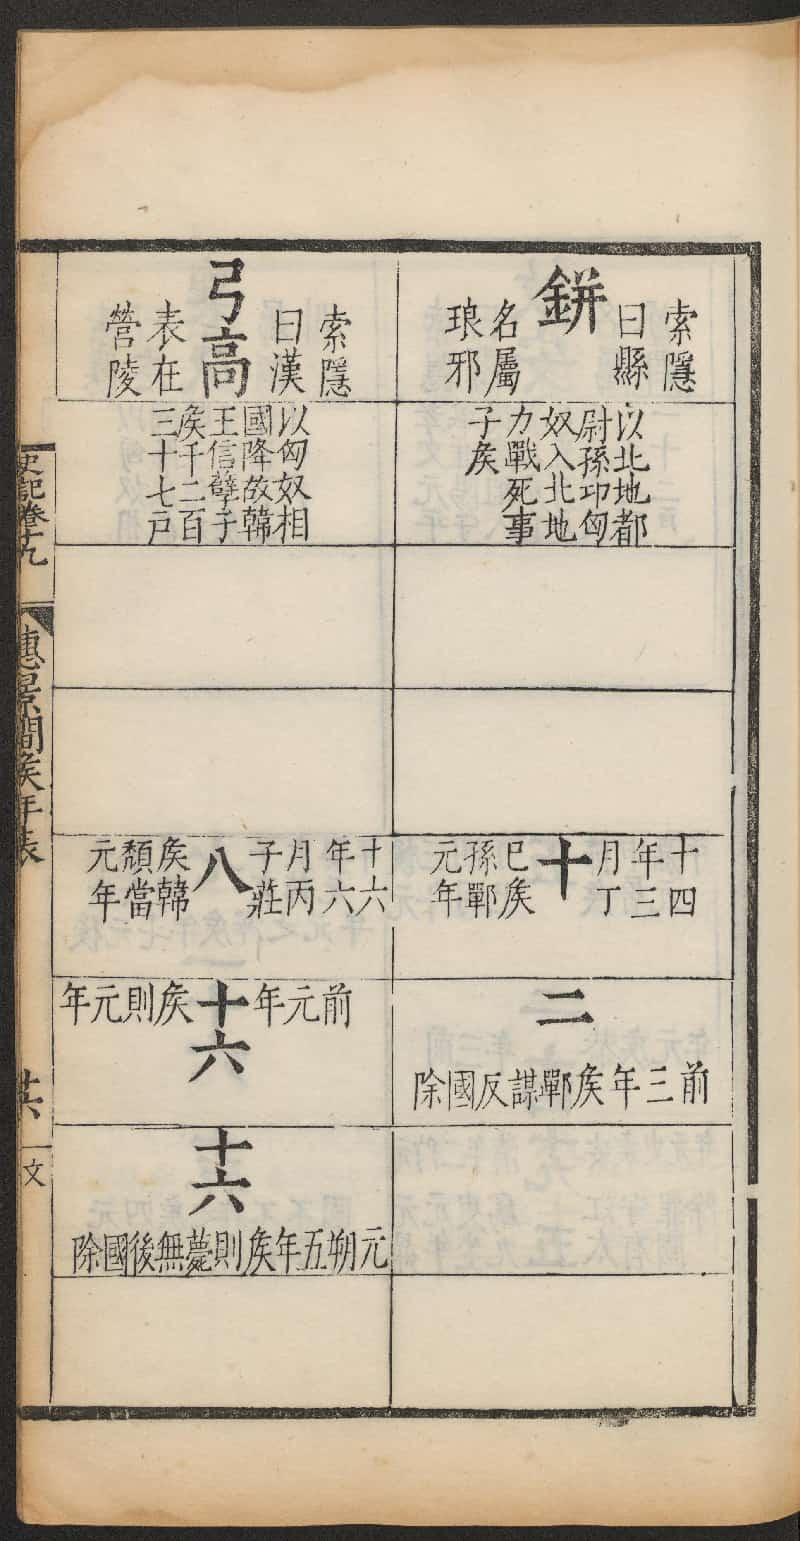 索隱
曰縣
鉼
名屬
琅邪
以北地都
尉孫卬匈
奴入北地
力戰死事
子矦
十四
年三
月丁
十
巳矦
孫鄲
元年
二
前三年矦鄲謀反國除
索隱
曰漢
弓高
表在
營陵
以匈奴相
國降故韓
王信孽子
矦千二百
三十七戶
十六
年六
月丙
子莊
八
矦韓
頹當
元年
前元年
十六
矦則元年
十六
元朔五年矦則薨無後國除
史記卷十九
惠景間矦年表
文